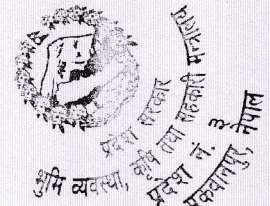 प्रदेश सरकार
भूमि व्यवस्था, कृषि तथा सहकारी मन्त्रालय
प्रदेश नं. ३
मकवानपुर, नेपाल